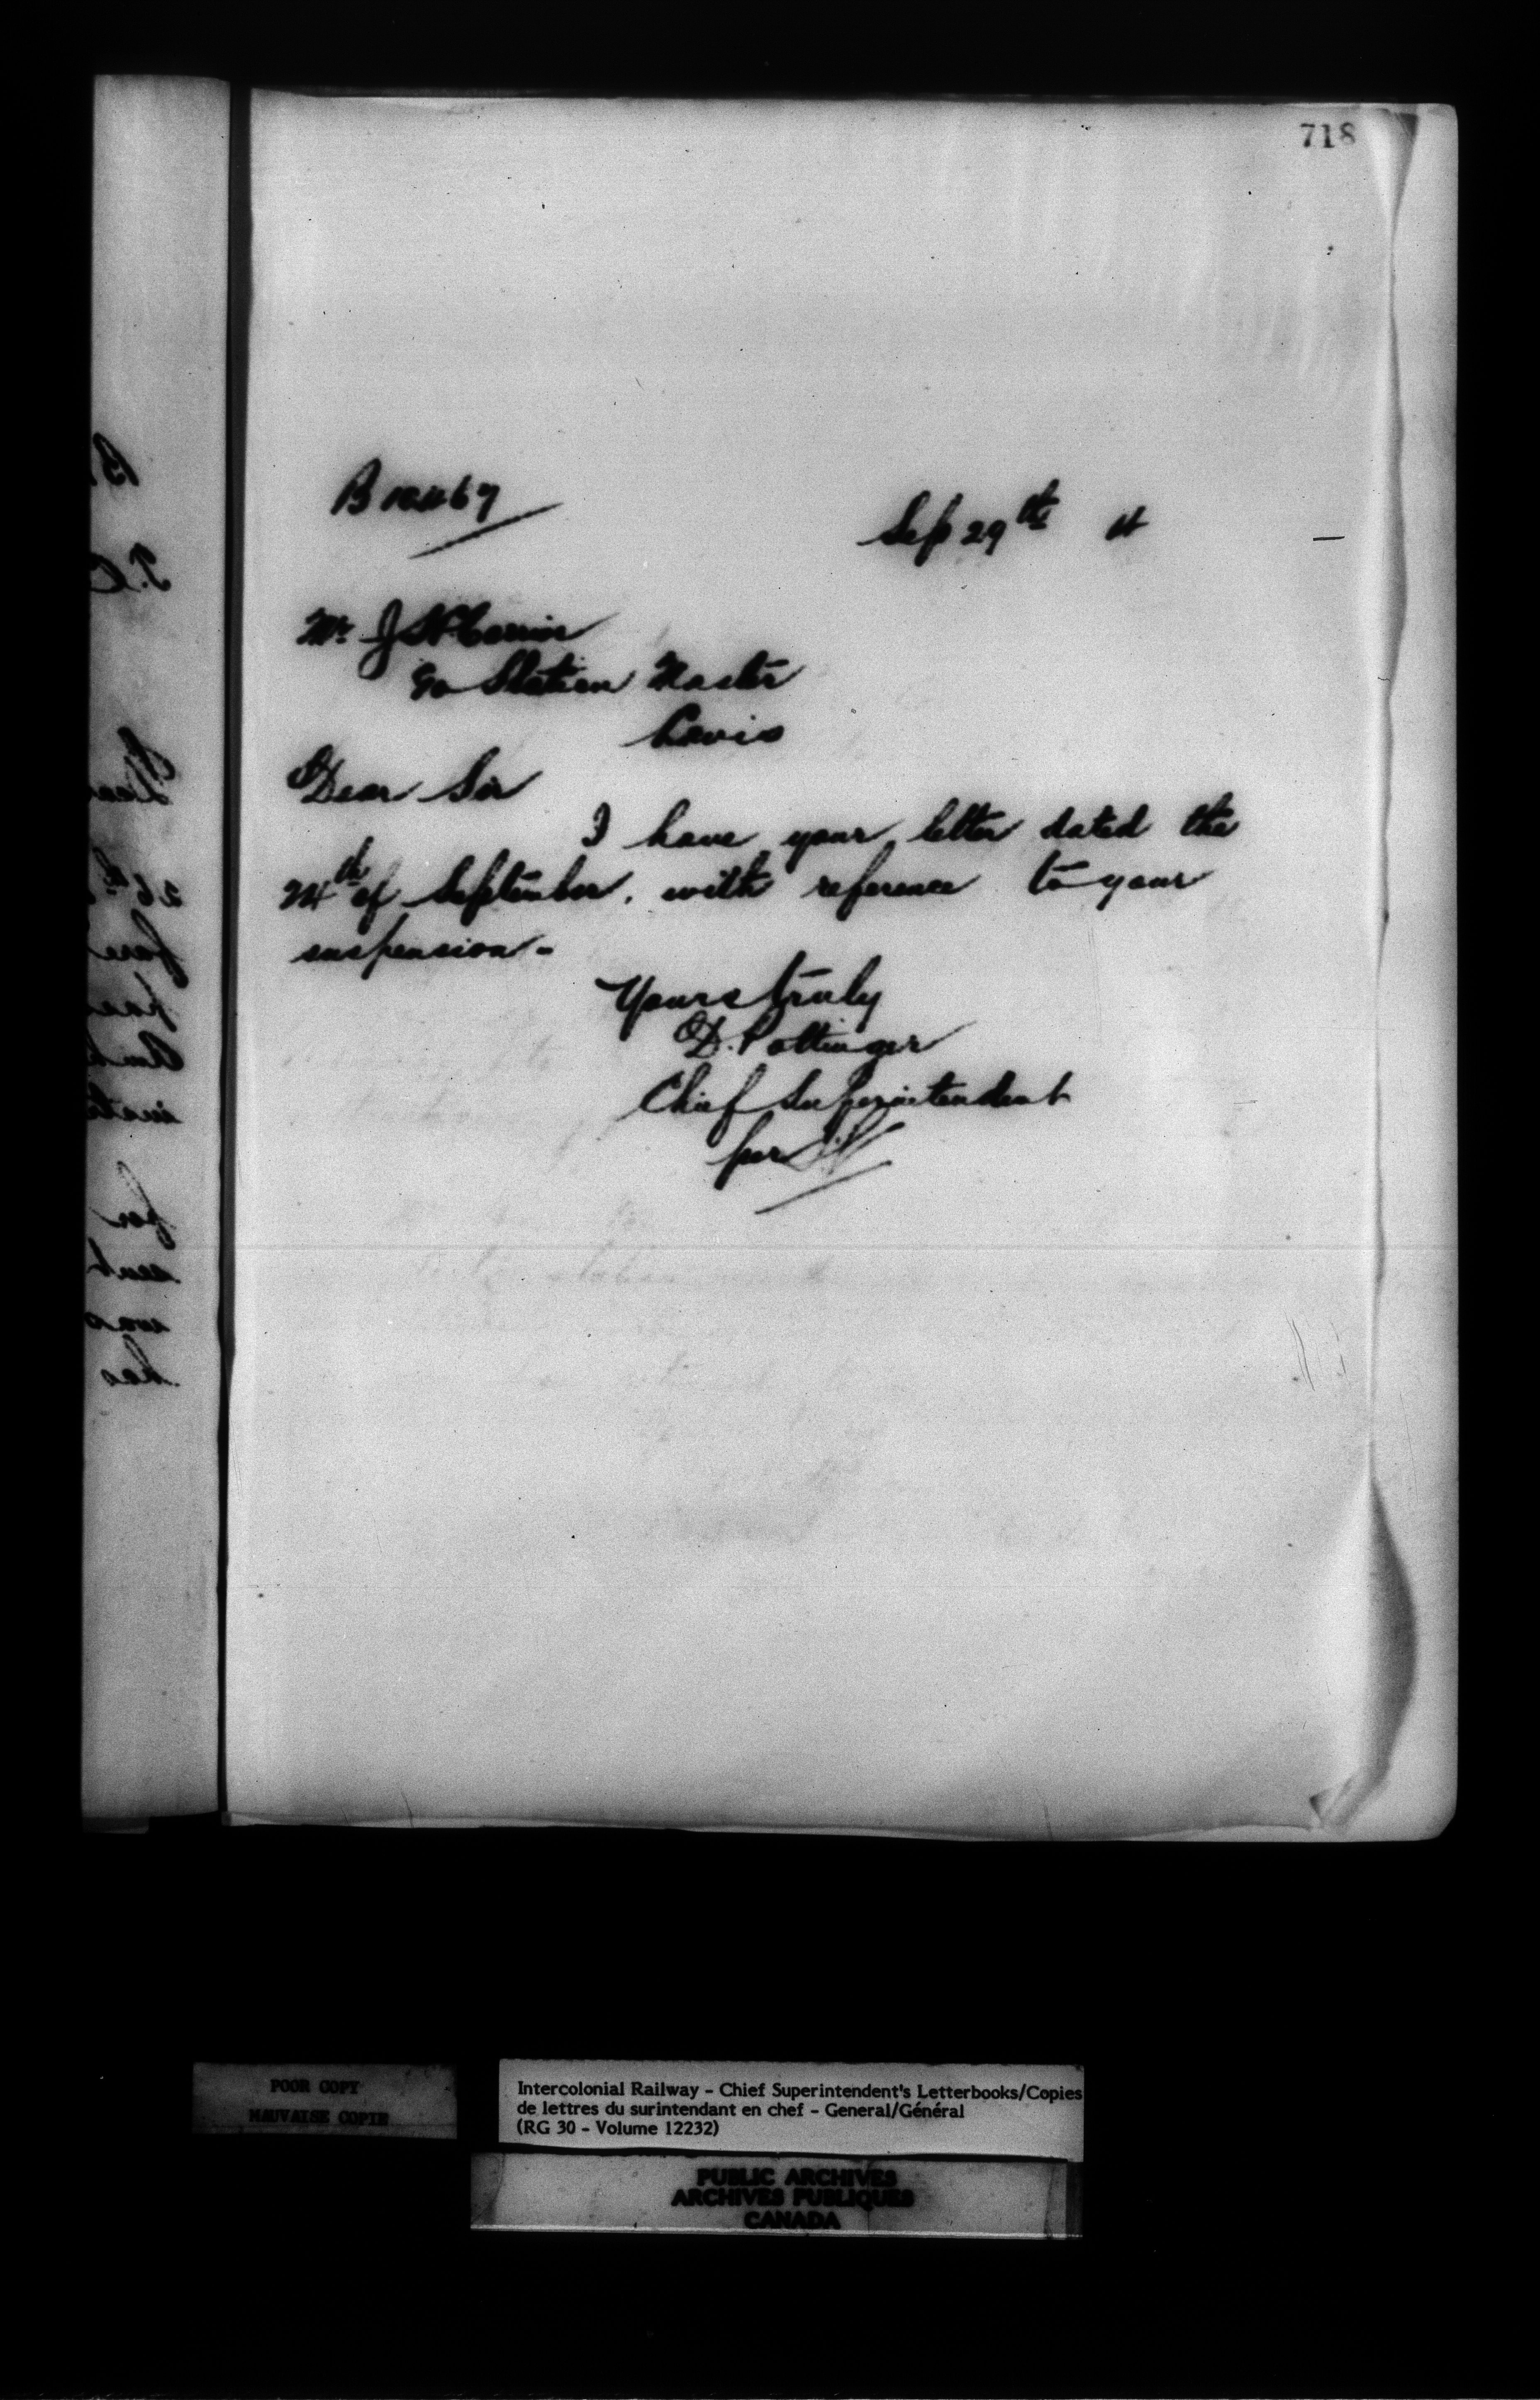 718
B 10467
Sep 29th 4
Mr J Carrier
c/o Station Master
Levis
Dear Sir
I have your letter dated the
24th of September. with reference to your
suspension -
Yours truly
D. Pottinger
Chief Superintendent
per
POOR COPY
MAUVAISE COPIE
Intercolonial Railway - Chief Superintendent's Letterbooks/Copies
de lettres du surintendant en chef - General/Général
(RG 30 - Volume 12232)
PUBLIC ARCHIVES
ARCHIVES PUBLIQUES
CANADA